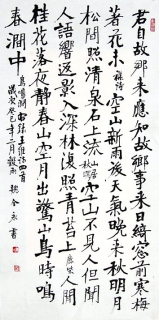 君自故鄉來應知故鄉事来日綺窓前寒梅
著花未雜詩空山新雨後天氣晚来秋明月
松間照清泉石上流山居秋暝空山不見人但聞
人語響返景入深林復照青苔上鹿柴人閒
桂花落夜静春山空月出驚山鳥時鳴
春澗中鳥鳴澗
王維詩四首
癸巳年三月
書